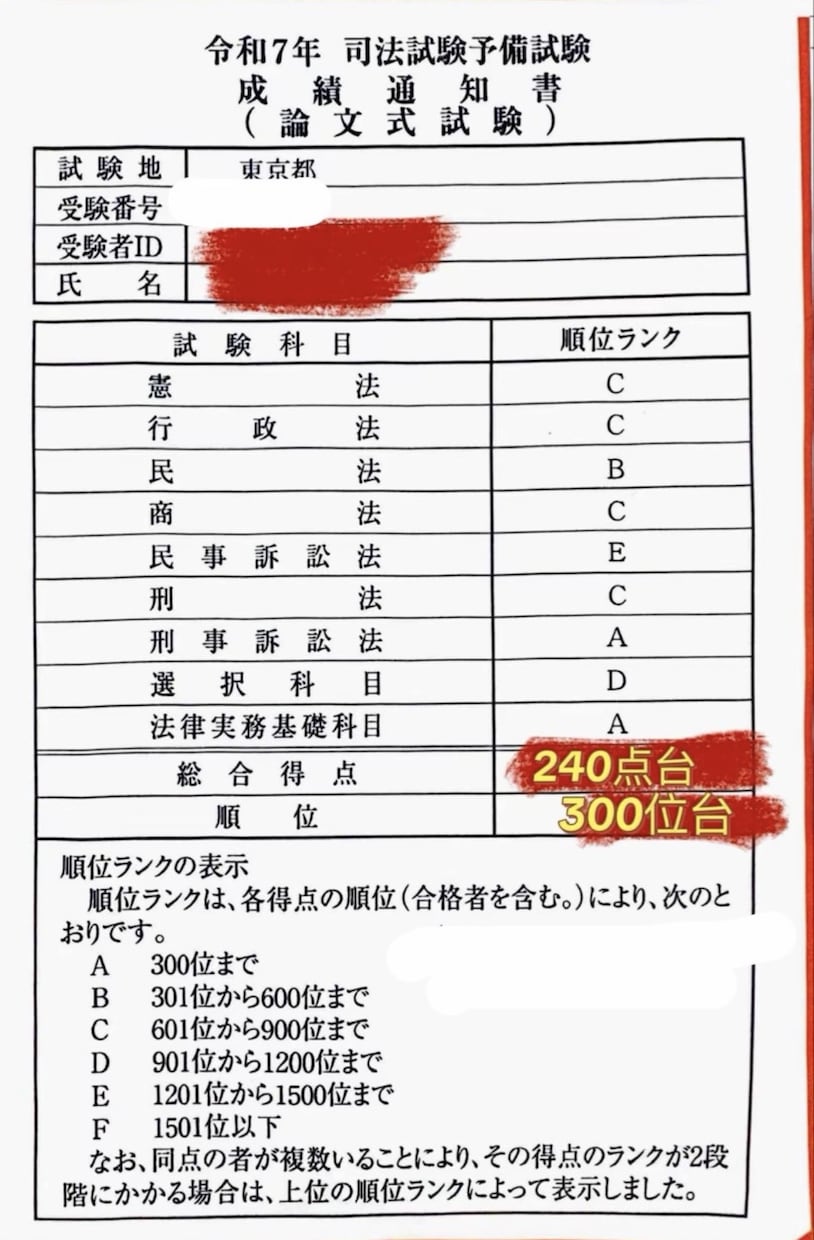 令和7年 司法試験予備試験
成績通知書
(論文式試験)
試験地 東京都
受験番号
受験者ID
氏名
試験科目 順位ランク
憲法 C
行政法 C
民法 B
商法 C
民事訴訟法 E
刑法 C
刑事訴訟法 A
選択科目 D
法律実務基礎科目 A
総合得点 240点台
順位 300位台
順位ランクの表示
順位ランクは、各得点の順位(合格者を含む。)により、次のと
おりです。
A 300位まで
B 301位から600位まで
C 601位から900位まで
D 901位から1200位まで
E 1201位から1500位まで
F 1501位以下
なお、同点の者が複数いることにより、その得点のランクが2段
階にかかる場合は、上位の順位ランクによって表示しました。